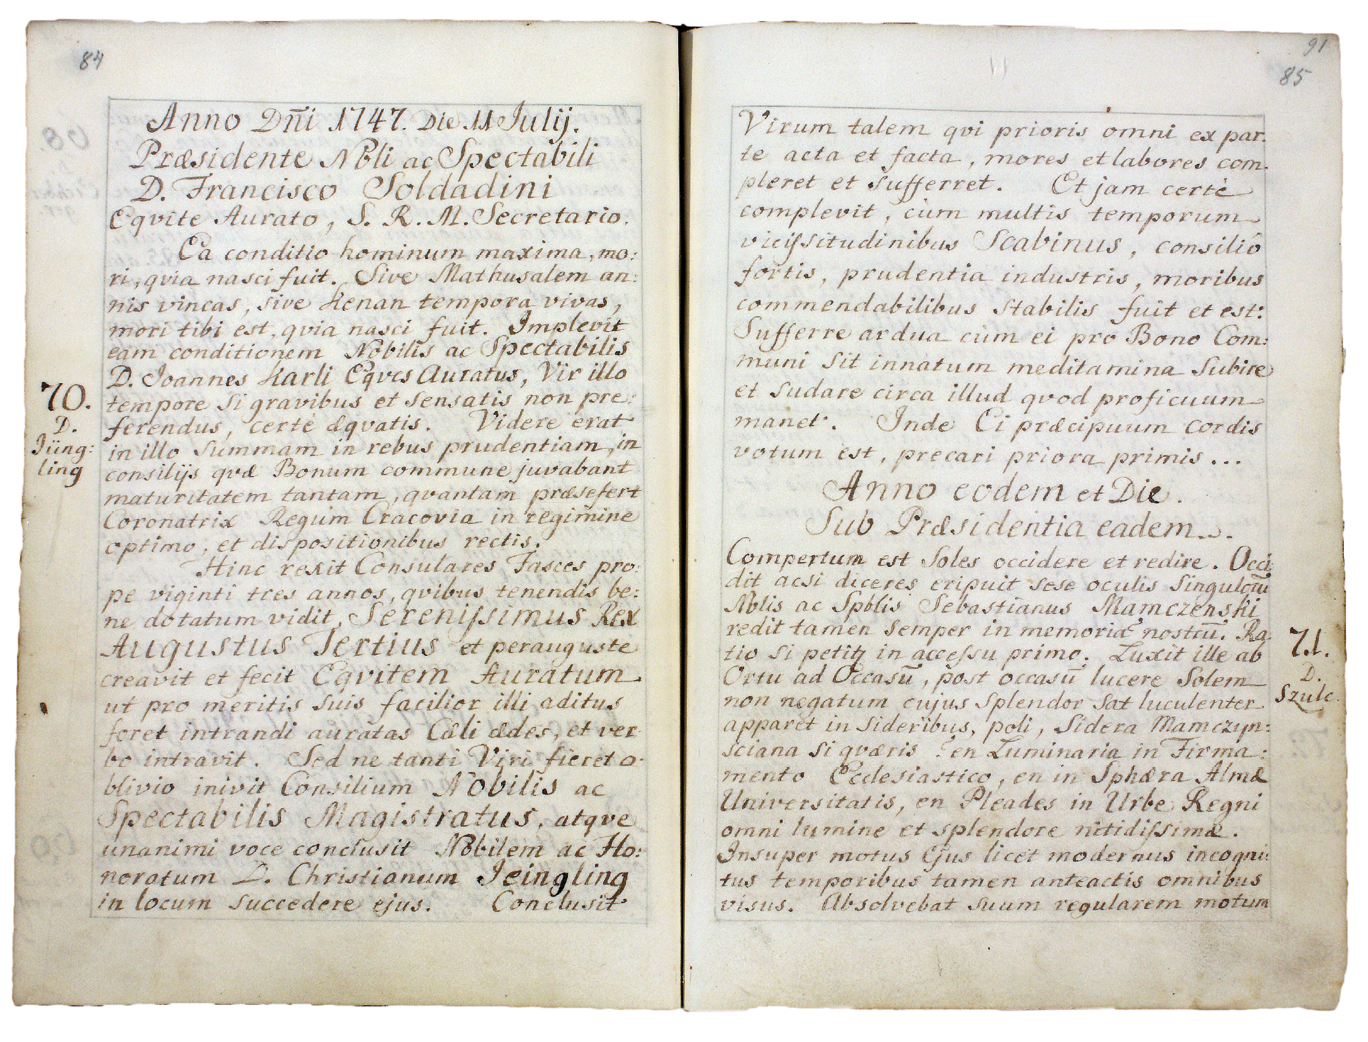 84
Anno Dñi 1747. Die 11 Julij.
Præsidente Nbli ac Spectabili
D. Francisco Soldadini
Eqvite Aurato, S. R. M. Secretario.
Ea conditio hominum maxima, mo:
ri, qvia nasci fuit. Sive Mathusalem an:
nis vincas, sive Henan tempora vivas,
mori tibi est, qvia nasci fuit. Implevit
eam conditionem Nobilis ac Spectabilis
D. Joannes Karli Eqves Auratus, Vir illo
tempore si gravibus et sensatis non pre:
ferendus, certe æqvatis. Videre erat
70.
D.
Jüng:
ling
in illo summam in rebus prudentiam, in
consilijs qvæ Bonum commune juvabant
maturitatem tantam, qvantam præsefert
Coronatrix Regum Cracovia in regimine
optimo, et dispositionibus rectis.
Hinc rexit Consulares Fasces pro:
pe viginti tres annos, qvibus tenendis be:
ne dotatum vidit, Serenissimus Rex
Augustus Tertius et perauguste
creavit et fecit Eqvitem Auratum
ut pro meritis suis facilior illi aditus
foret intrandi auratas Cæli ædes, et ver
bo intravit. Sed ne tanti Viri fieret o-
blivio inivit Consilium Nobilis ac
Spectabilis Magistratus, atqve
unanimi voce conclusit Nobilem ac Ho:
noratum D. Christianum Jeingling
in locum succedere ejus. Conclusit
91
85
Virum talem qvi prioris omni ex par:
te acta et facta, mores et labores com:
pleret et sufferret. Et jam certè
complevit, cùm multis temporum
vicissitudinibus Scabinus, consiliô
fortis, prudentia industris, moribus
commendabilibus stabilis fuit et est:
Sufferre ardua cùm ei pro Bono Com:
muni sit innatum meditamina subire
et sudare circa illud qvod proficuum
manet. Inde Ei præcipuum cordis
votum est, precari priora primis...
Anno eodem et Die.
Sub Præsidentia eadem...
Compertum est Soles occidere et redire. Occi:
dit acsi diceres eripuit sese oculis singulorũ
Nblis ac Spblis Sebastianus Mamczenski
redit tamen semper in memoriã nostrũ. Ra:
71.
D.
Szulc
tio si petitq in accessu primo. Luxit ille ab
Ortu ad Occasũ, post occasũ lucere Solem
non negatum cujus splendor sat luculenter
apparet in sideribus, poli, Sidera Mamczyn:
sciana si qværis? en Luminaria in Firma:
mento Ecclesiastico, en in Sphæra Almæ
Universitatis, en Pleades in Urbe Regni
omni lumine et splendore nitidissimæ.
Insuper motus Ejus licet modernus incogni:
tus temporibus tamen anteactis omnibus
visus. Absolvebat suum regularem motum